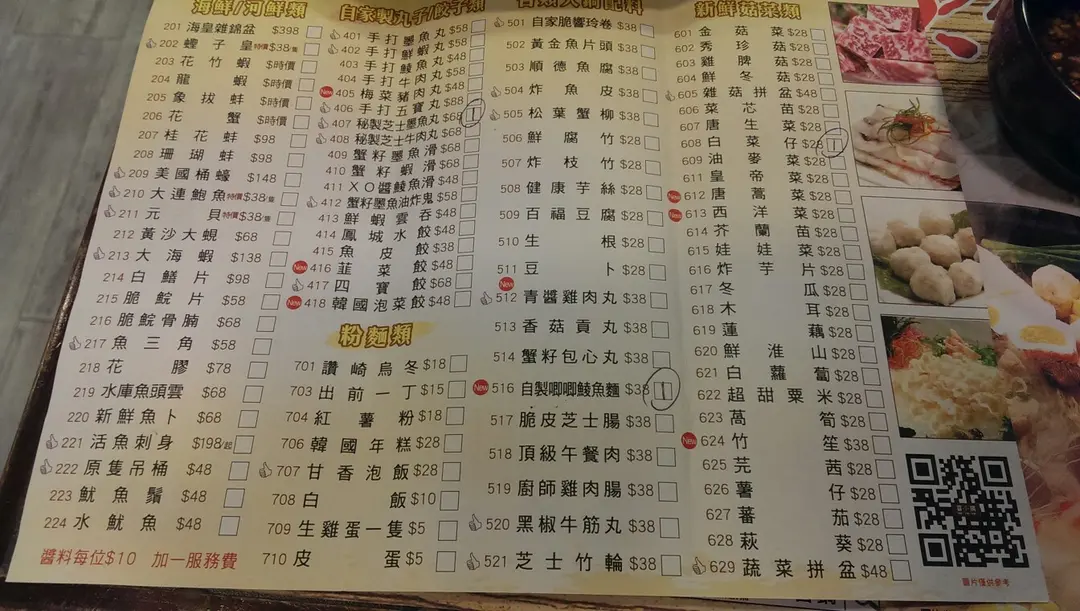 海鮮/河鮮類
201 海皇雜錦盆 $398
202 蟶子皇 特價$38/隻
203 花竹蝦 $時價
204 龍蝦 $時價
205 象拔蚌 $時價
206 花蟹 $時價
207 桂花蚌 $98
208 珊瑚蚌 $98
209 美國桶蠔 $148
210 大連鮑魚 特價$38/隻
211 元貝 特價$38/隻
212 黃沙大蜆 $68
213 大海蝦 $138
214 白鱔片 $98
215 脆鯇片 $58
216 脆鯇骨腩 $68
217 魚三角 $58
218 花膠 $78
219 水庫魚頭雲 $68
220 新鮮魚卜 $68
221 活魚刺身 $198/起
222 原隻吊桶 $48
223 魷魚鬚 $48
224 水魷魚 $48
醬料每位$10 加一服務費
自家製丸子/餃子類
401 手打墨魚丸 $58
402 手打鮮蝦丸 $58
403 手打鯪魚丸 $48
404 手打牛肉丸 $58
New 405 梅菜豬肉丸 $48
406 手打五寶丸 $88
407 秘製芝士墨魚丸 $68 1
408 秘製芝士牛肉丸 $68
409 蟹籽墨魚滑 $68
410 蟹籽蝦滑 $68
411 XO醬鯪魚滑 $48
412 蟹籽墨魚油炸鬼 $58
413 鮮蝦雲吞 $48
414 鳳城水餃 $48
415 魚皮餃 $38
New 416 韮菜餃 $48
417 四寶餃 $68
New 418 韓國泡菜餃 $48
粉麵類
701 讚崎烏冬 $18
703 出前一丁 $15
704 紅薯粉 $18
706 韓國年糕 $28
707 甘香泡飯 $28
708 白飯 $10
709 生雞蛋一隻 $5
710 皮蛋 $5
火鍋配料
501 自家脆響玲卷 $38
502 黃金魚片頭 $38
503 順德魚腐 $38
504 炸魚皮 $38
505 松葉蟹柳 $38
506 鮮腐竹 $28
507 炸枝竹 $28
508 健康芋絲 $28
509 百福豆腐 $28
510 生根 $28
511 豆卜 $28
New 512 青醬雞肉丸 $38
513 香菇貢丸 $38
514 蟹籽包心丸 $38
New 516 自製唧唧鯪魚麵 $38 1
517 脆皮芝士腸 $38
518 頂級午餐肉 $38
519 廚師雞肉腸 $38
520 黑椒牛筋丸 $38
521 芝士竹輪 $38
新鮮菇菜類
601 金菇菜 $28
602 秀珍菇 $28
603 雞脾菇 $28
604 鮮冬菇 $28
605 雜菇拼盆 $48
606 菜芯苗 $28
607 唐生菜 $28
608 白菜仔 $28 1
609 油麥菜 $28
611 皇帝菜 $28
New 612 唐蒿菜 $28
New 613 西洋菜 $28
614 芥蘭苗 $28
615 娃娃菜 $28
616 炸芋片 $28
617 冬瓜 $28
618 木耳 $28
619 蓮藕 $28
620 鮮淮山 $28
621 白蘿蔔 $28
622 超甜粟米 $28
623 萵筍 $28
New 624 竹笙 $38
625 芫茜 $28
626 薯仔 $28
627 蕃茄 $28
628 萩葵 $28
629 蔬菜拼盆 $48
圖片僅供參考